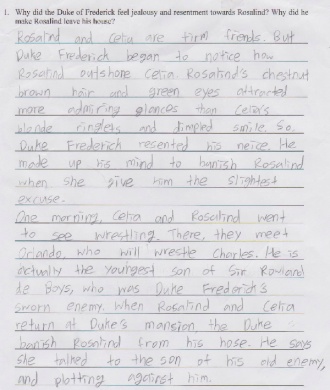 1. Why did the Duke of Frederick feel jealousy and resentment towards Rosalind? Why did he
make Rosalind leave his house?
Rosalind and Celia are firm friends. But
Duke Frederick began to notice how
Rosalind outshone Celia. Rosalind's chestnut
brown hair and green eyes attracted
more admiring glances than Celia's
blonde ringlets and dimpled smile. So,
Duke Frederick resented his neice. He
made up his mind to banish Rosalind
when she give him the slightest
excuse.
One morning, Celia and Rosalind went
to see wrestling. There, they meet
Orlando, who will wrestle Charles. He is
actually the youngest son of Sir Rowland
de Boys, who was Duke Frederick's
sworn enemy. When Rosalind and Celia
return at Duke's mansion, the Duke
banish Rosalind from his hose. He says
she talked to the son of his old enemy,
and plotting against him.